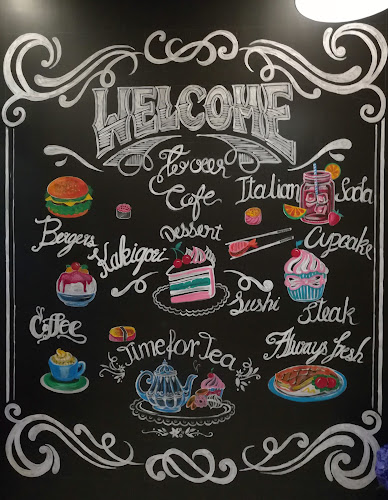 WELCOME
To our
Cafe
Dessert
Italian Soda
Bergers
Kakigori
Cupcake
Sushi
Steak
Coffee
Time for Tea
Always fresh